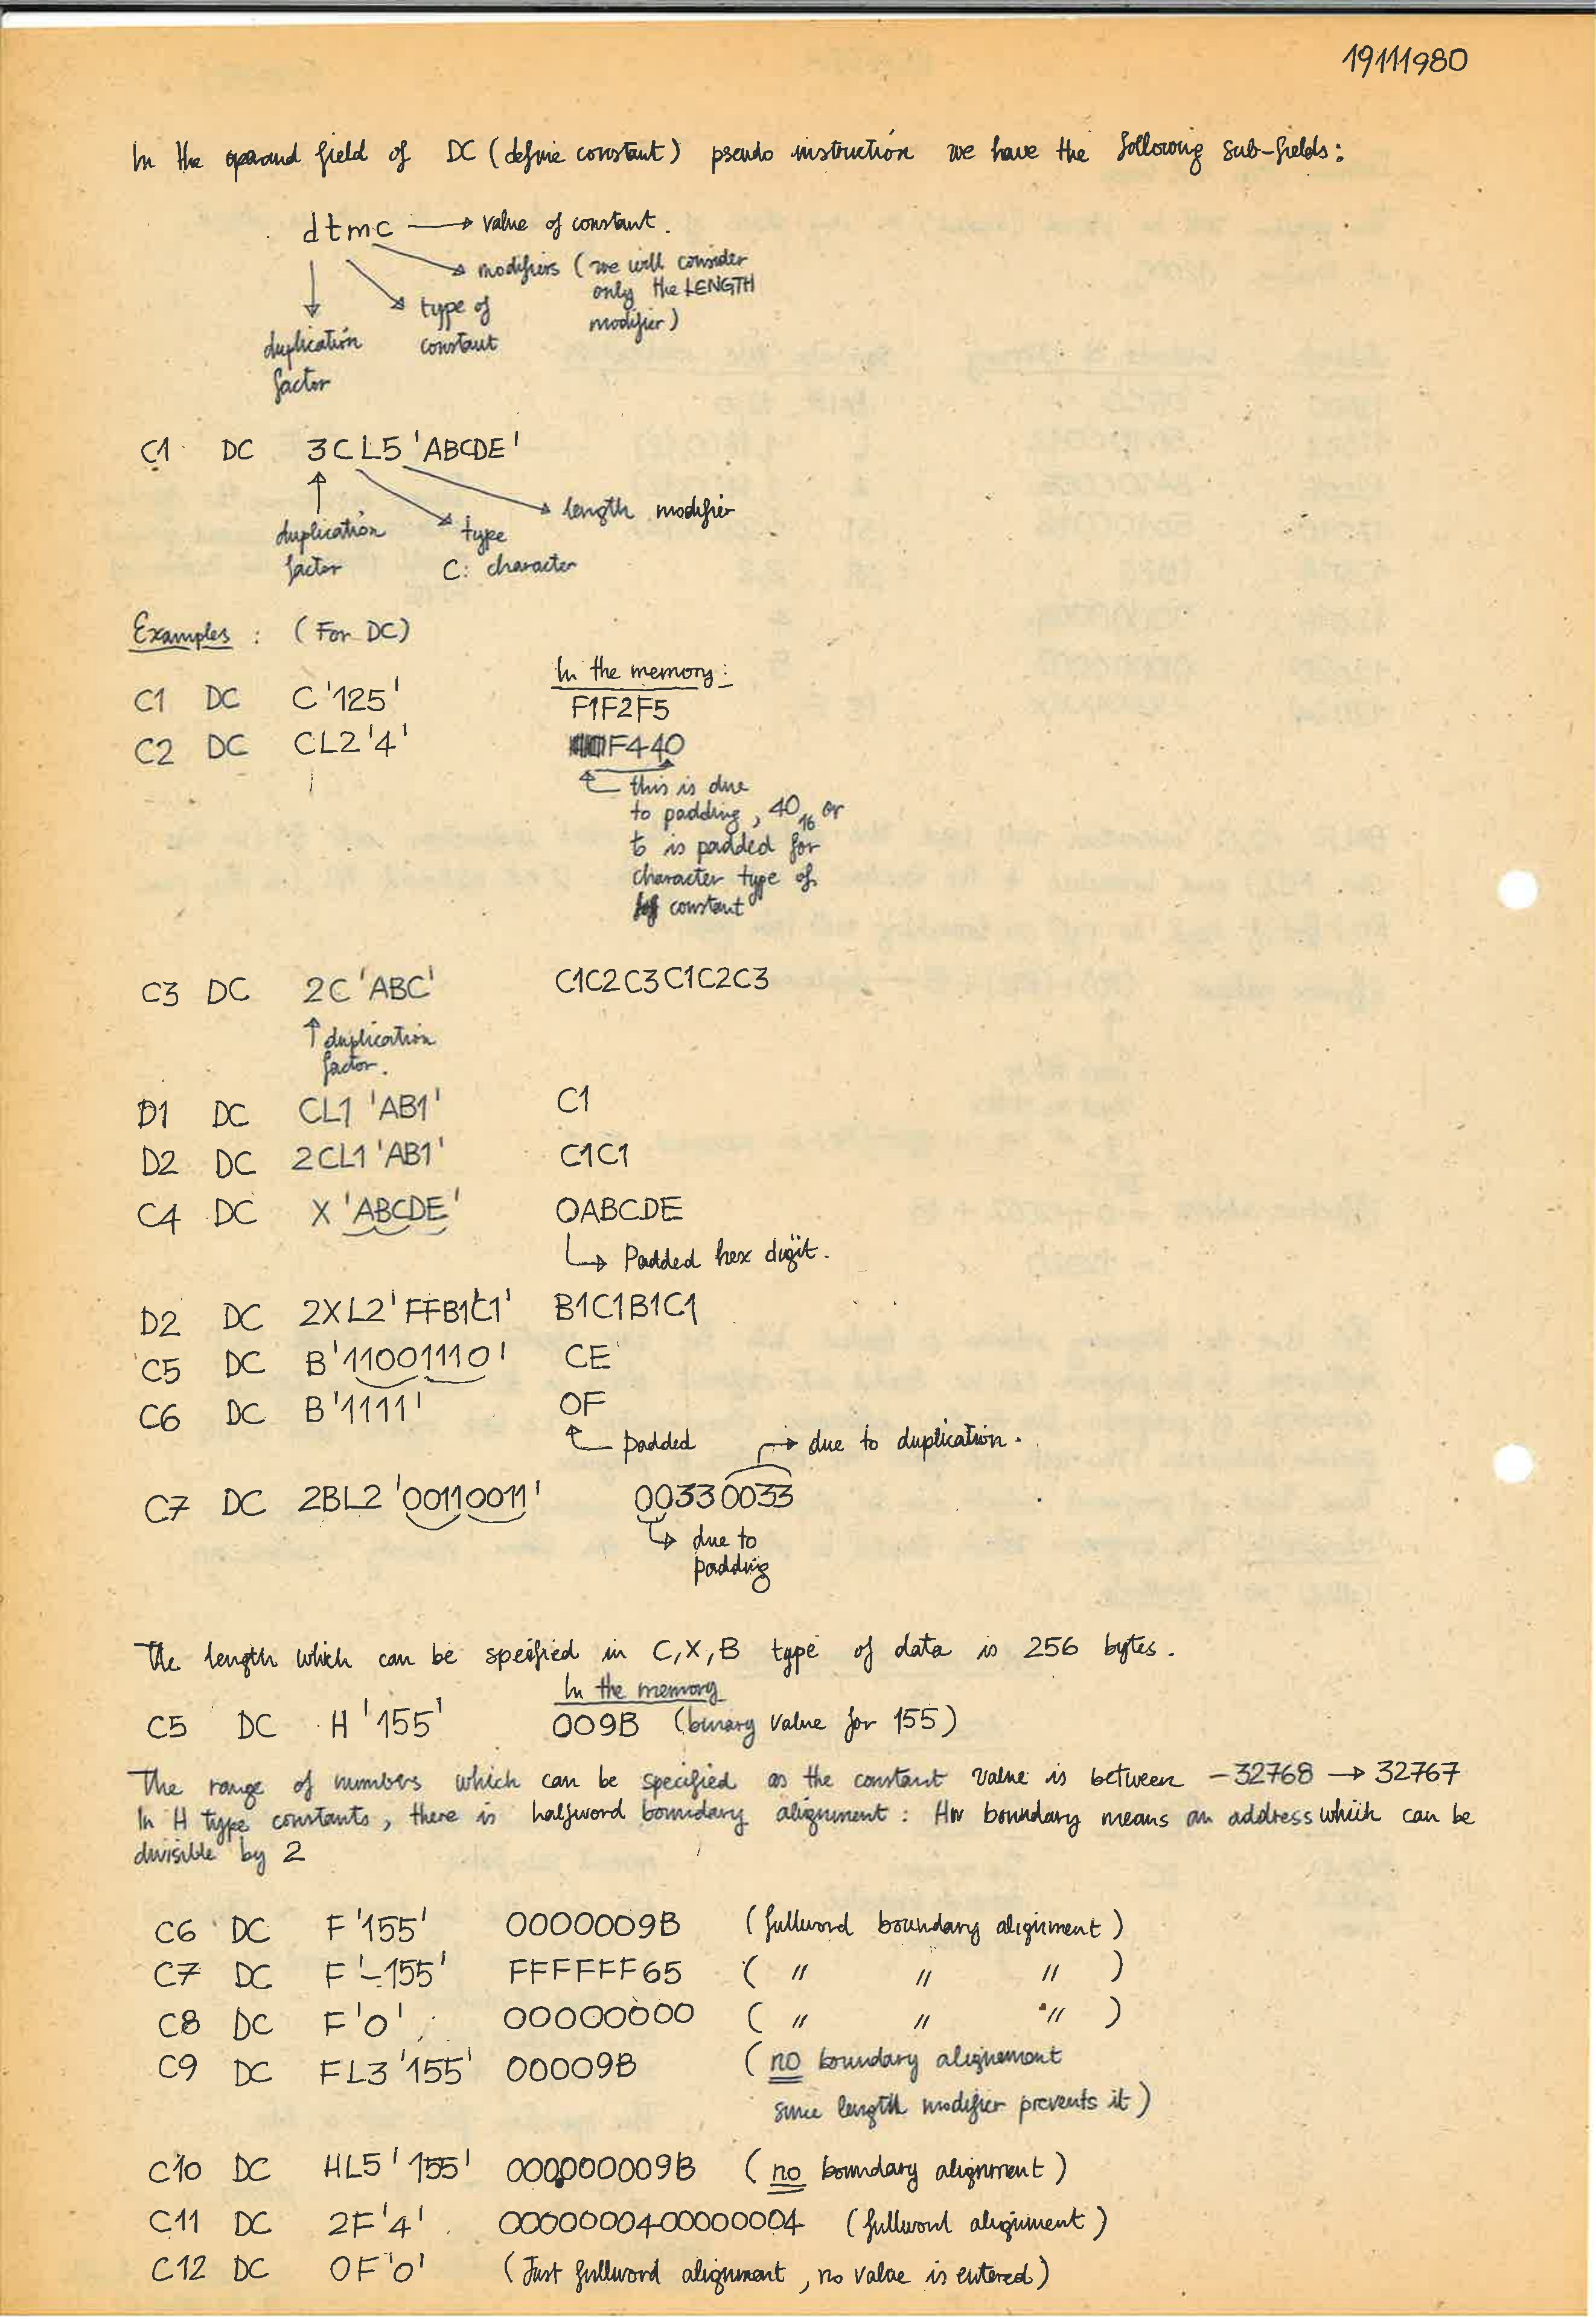 19111980
In the operand field of DC (define constant) pseudo instruction we have the following sub-fields:
dtmc → value of constant.
modifiers (we will consider
only the LENGTH
modifier)
type of
constant
duplication
factor
C1 DC 3CL5 'ABCDE'
length modifier
duplication
factor
type
C: character
Examples : (For DC)
In the memory:
C1 DC C'125' F1F2F5
C2 DC CL2'4' F440
this is due
to padding, 40₁₆ or
ƀ is padded for
character type of
constant
C3 DC 2C'ABC' C1C2C3C1C2C3
↑ duplication
factor.
D1 DC CL1 'AB1' C1
D2 DC 2CL1 'AB1' C1C1
C4 DC X 'ABCDE' 0ABCDE
↳ Padded hex digit.
D2 DC 2XL2'FFB1C1' B1C1B1C1
C5 DC B'11001110' CE
C6 DC B'1111' 0F
padded → due to duplication.
C7 DC 2BL2 '00110011' 00330033
↳ due to
padding
The length which can be specified in C,X,B type of data is 256 bytes.
In the memory
C5 DC H'155' 009B (binary value for 155)
The range of numbers which can be specified as the constant value is between -32768 → 32767
In H type constants, there is halfword boundary alignment: Hw boundary means an address which can be
divisible by 2
C6 DC F'155' 0000009B (fullword boundary alignment)
C7 DC F'-155' FFFFFF65 ( " " " )
C8 DC F'0' 00000000 ( " " " )
C9 DC FL3'155' 00009B (no boundary alignement
since length modifier prevents it)
C10 DC HL5'155' 000000009B (no boundary alignment)
C11 DC 2F'4' 0000000400000004 (fullword alignment)
C12 DC 0F'0' (Just fullword alignment, no value is entered)